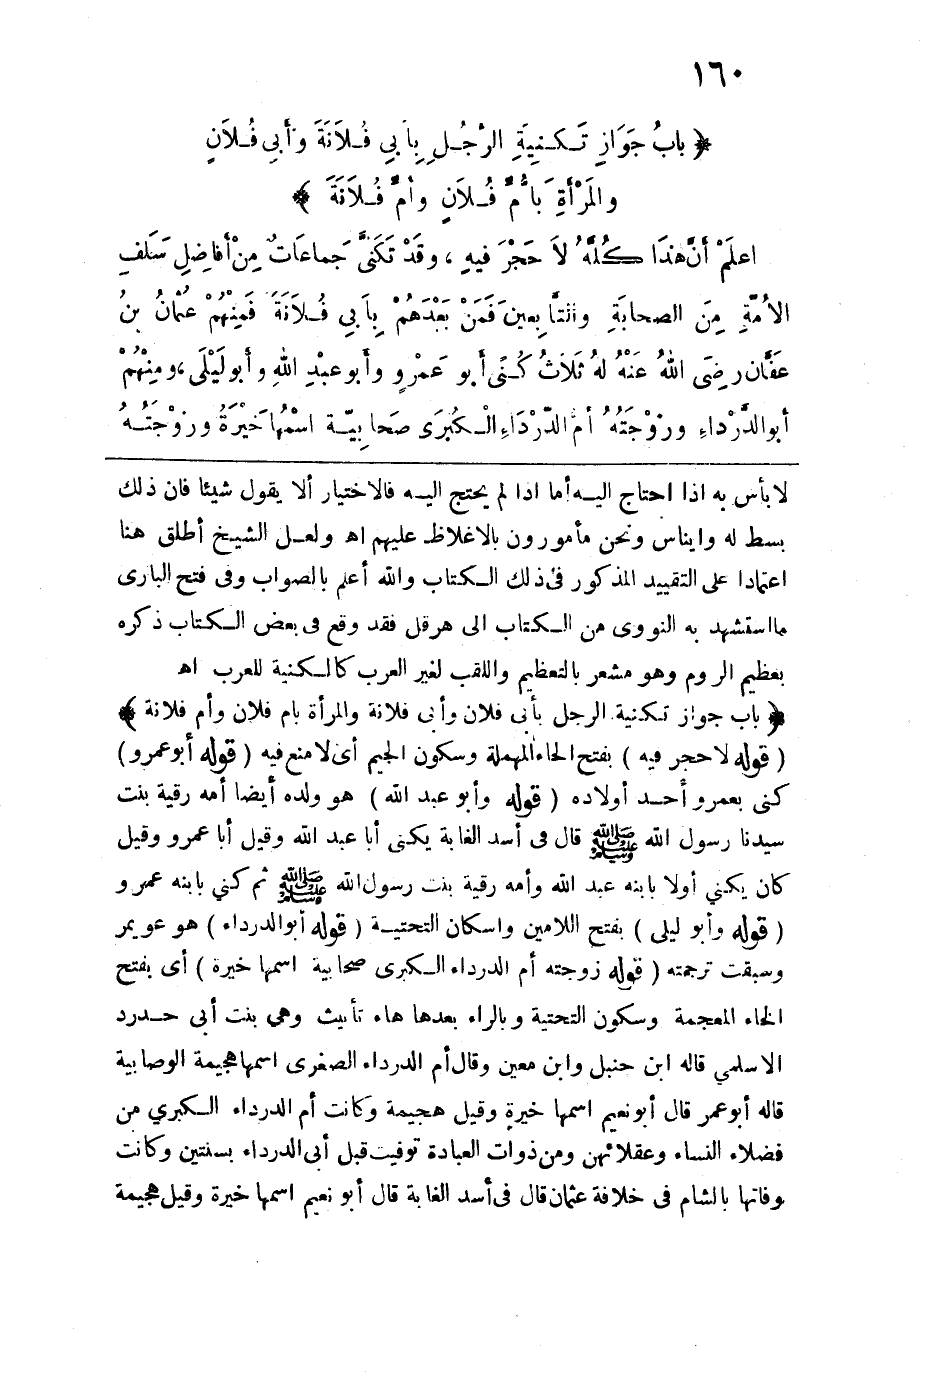 ١٦٠
﴿ بابُ جَوَازِ تَـكـنِيةِ الرَّجُلِ بِأَبي فُـلاَنَةَ وَأَبي فُـلاَنٍ
والمَرْأَةِ بَأُمِّ فُـلاَنٍ وأُمِّ فُـلاَنَةَ ﴾
اعلَمْ أَنَّ هٰذَا كُلَّهُ لاَ حَجْرَ فيهِ ، وقَدْ تَكَنَّى جَماعَاتٌ مِنْ أَفاضِلِ سَلَفِ
الأُمَّةِ مِنَ الصحابَةِ والتَّابِعينَ فَمَنْ بَعْدَهُمْ بِأَبي فُلاَنَةَ فَمِنْهُمْ عُثْمانُ بنُ
عَفَّان رضِيَ اللهُ عَنْهُ لهُ ثَلاَثُ كُـنًى أَبو عَمْرٍو وأَبو عبْدِ اللهِ وأَبو لَيْلَى ، ومِنْهُمْ
أَبو الدَّرْداءِ وزَوْجَتُهُ أُمُّ الدَّرْدَاءِ الْـكُبرَى صَحَابِيَّـة اسْمُها خَيْرَةُ وزَوْجَتُـهُ
لا بأس به اذا احتاج اليـه أما اذا لم يحتج اليـه فالاختيار ألا يقول شيئا فان ذلك
بسط له وايناس ونحن مأمورون بالاغلاظ عليهم اه ولعـل الشيـخ أطلق هنا
اعتمادا على التقييد المذكور فى ذلك الـكتاب والله أعلم بالصواب وفى فتح البارى
ما استشهد به النووى من الـكتاب الى هرقل فقد وقع فى بعض الـكتاب ذكره
بعظيم الروم وهو مشعر بالتعظيم واللقب لغير العرب كالـكنية للعرب اه
﴿ باب جواز تـكنية الرجل بأبى فلان وأبى فلانة والمرأة بام فلان وأم فلانة ﴾
( قوله لا حجر فيه ) بفتح الحاء المهملة وسكون الجيم أى لا منع فيه ( قوله أبو عمرو)
كنى بعمرو أحـد أولاده ( قوله وأبو عبد الله ) هو ولده أيضا أمه رقية بنت
سيدنا رسول الله ﷺ قال فى أسد الغابة يكنى أبا عبد الله وقيل أبا عمرو وقيل
كان يكني أولا بابنه عبد الله وأمه رقية بنت رسول الله ﷺ ثم كني بابنه عمرو
( قوله وأبو ليلى ) بفتح اللامين واسكان التحتيـة ( قوله أبو الدرداء ) هو عويمر
وسبقت ترجمته ( قوله زوجته أم الدرداء الـكبرى صحابية اسمها خيرة ) أى بفتح
الخاء المعجمة وسكون التحتية وبالراء بعدها هاء تأنيث وهي بنت أبى حـدرد
الاسلمي قاله ابن حنبل وابن معين وقال أم الدرداء الصغرى اسمها هجيمة الوصابية
قاله أبو عمر قال أبو نعيم اسمها خيرة وقيل هجيمة وكانت أم الدرداء الـكبري من
فضلاء النساء وعقلائهن ومن ذوات العبادة توفيت قبل أبى الدرداء بسنتين وكانت
وفاتها بالشام فى خلافة عثمان قال فى أسد الغابة قال أبو نعيم اسمها خيرة وقيل هجيمة